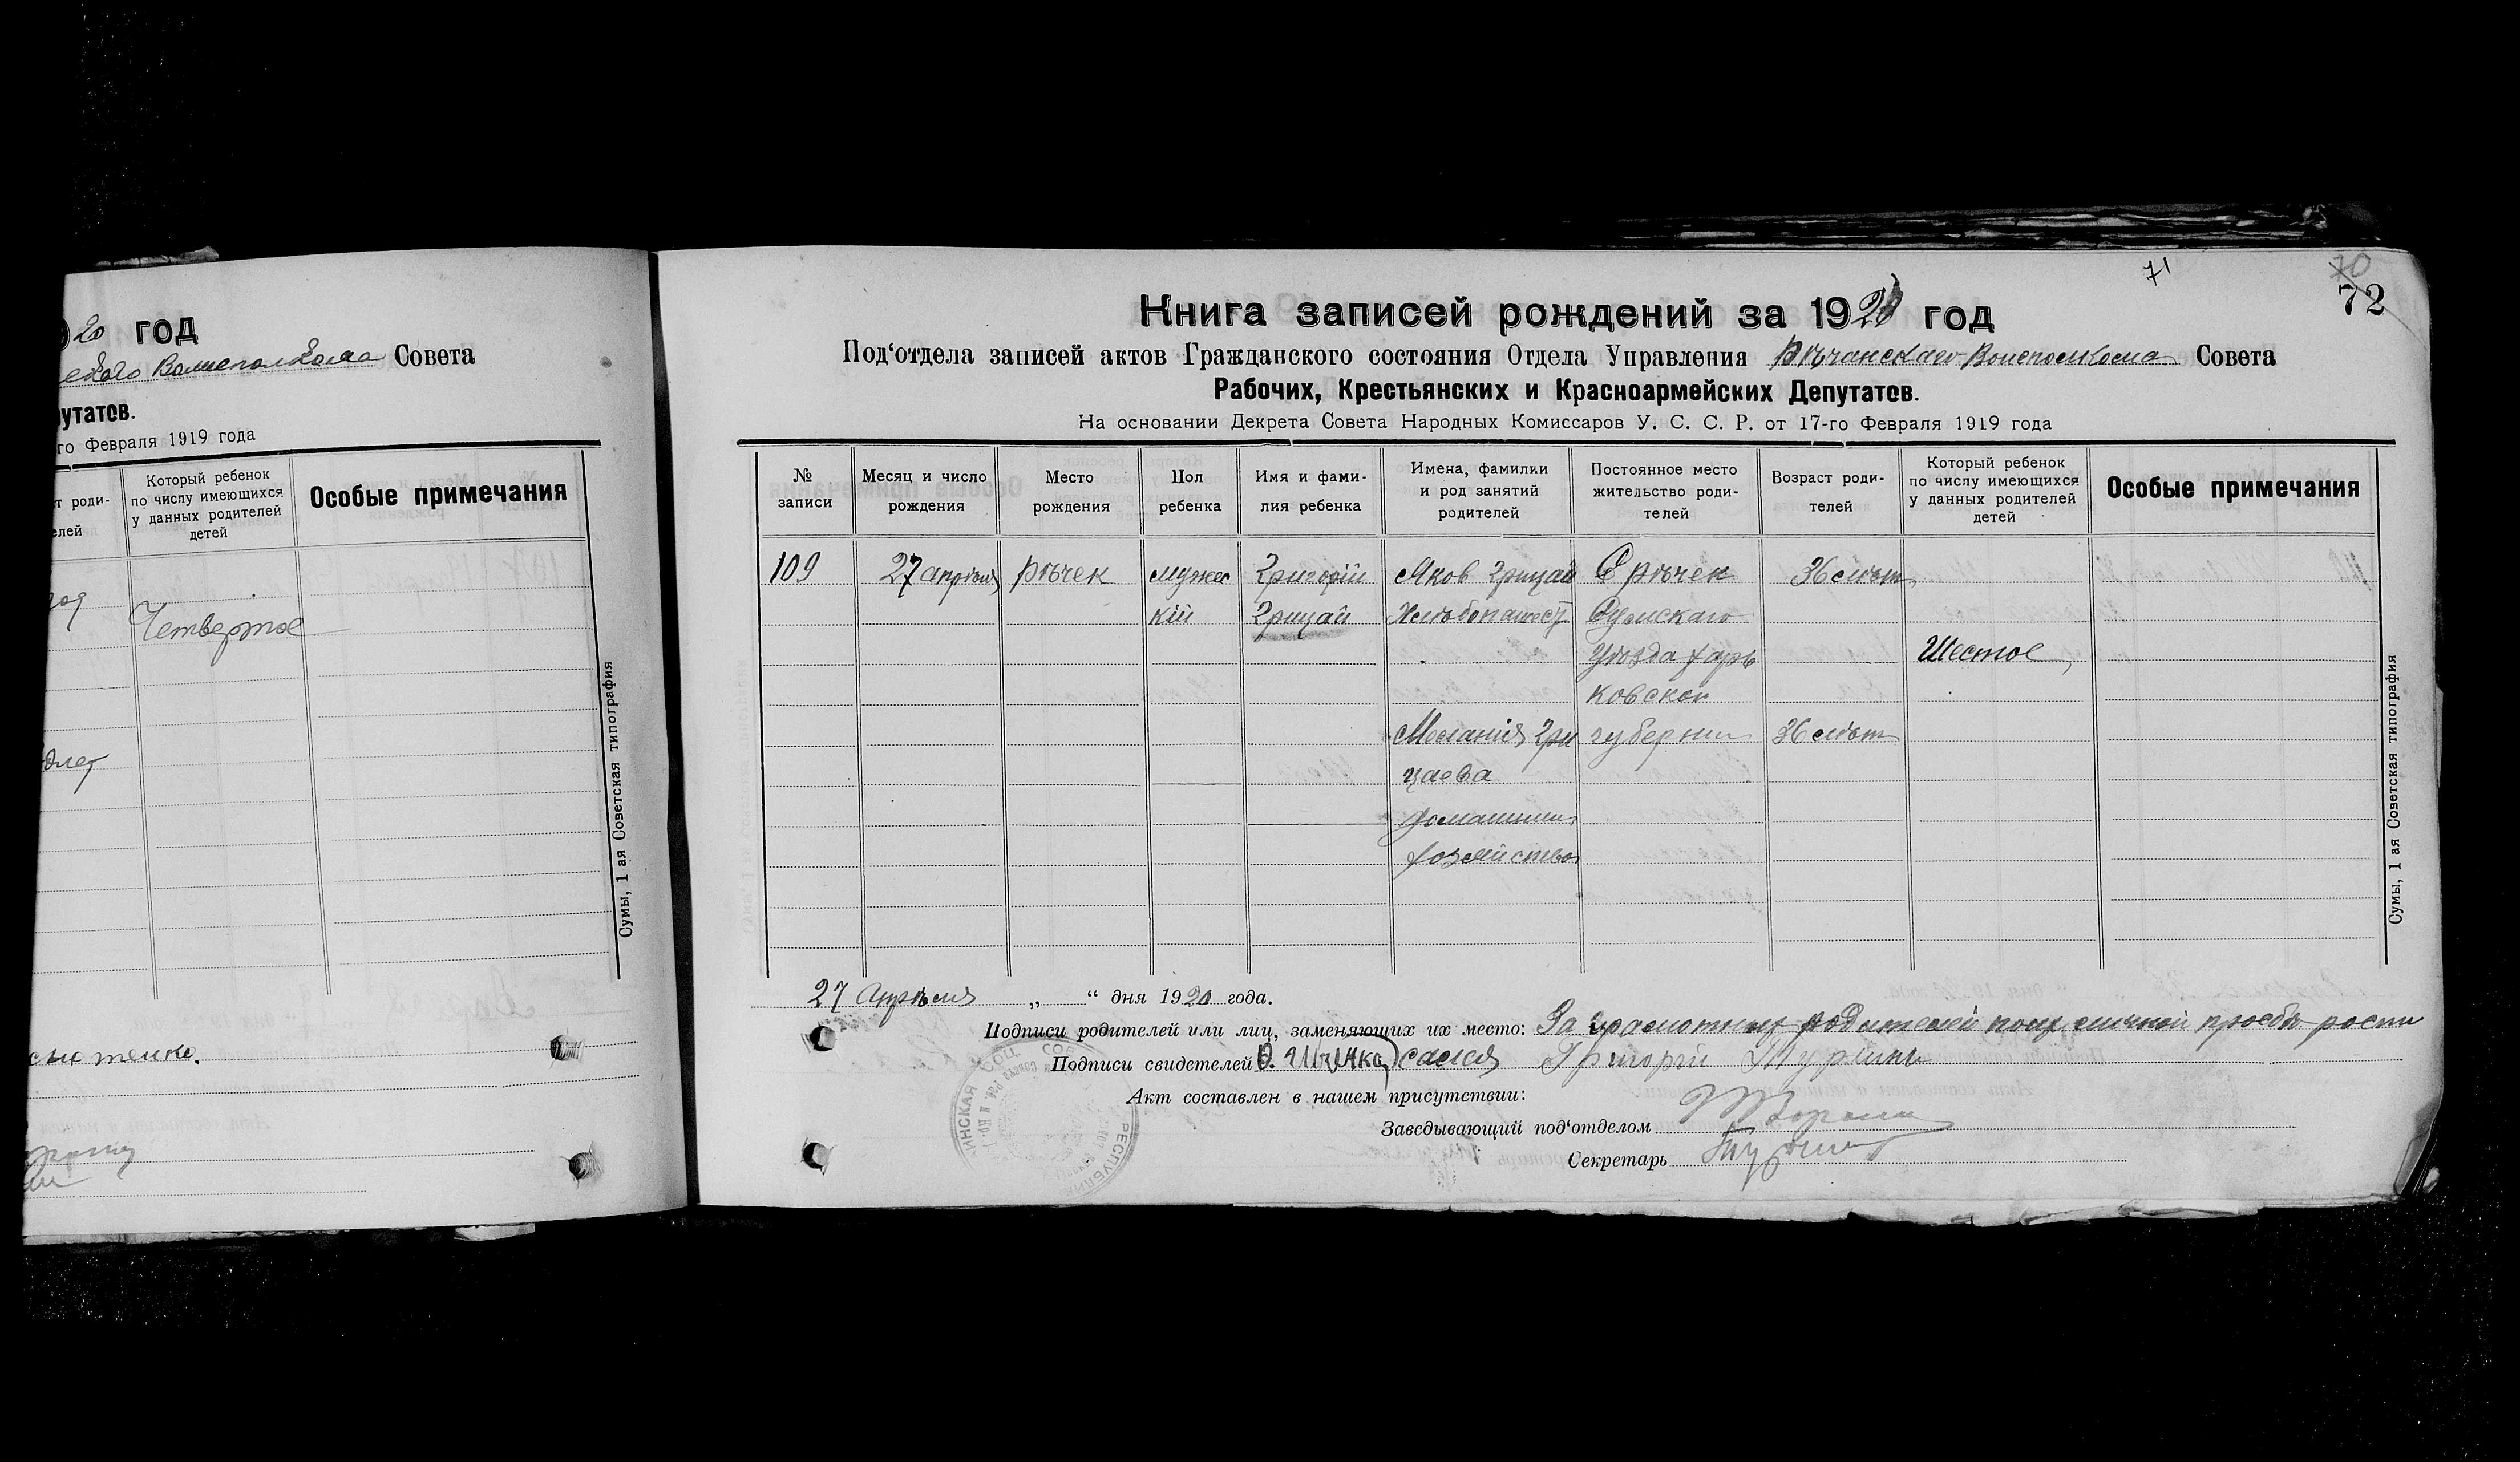 20 год
Совета
путатов.
го Февраля 1919 года
т роди-
елей
Который ребенок
по числу имеющихся
у данных родителей
детей
Особые примечания
Четвертое
Сумы, 1 ая Советская типография
71
70
72
Книга записей рождений за 1920 год
Под‘отдела записей актов Гражданского состояния Отдела Управления Рѣчанскаго Волисполкома Совета
Рабочих, Крестьянских и Красноармейских Депутатов.
На основании Декрета Совета Народных Комиссаров У. С. С. Р. от 17-го Февраля 1919 года
№
записи
Месяц и число
рождения
Место
рождения
Нол
ребенка
Имя и фами-
лия ребенка
Имена, фамилии
и род занятий
родителей
Постоянное место
жительство роди-
телей
Возраст роди-
телей
Который ребенок
по числу имеющихся
у данных родителей
детей
Особые примечания
109
27 апрѣля
Рѣчек
мужес
кій
Григорій
Грицай
Яков Грицай
Хлѣбопашест
Меланія Гри
цаева
домашнии
хозяйство
С Рѣчек
Сумскаго
уѣзда Харь
ковской
губернии
36 лѣт
36 лѣт
Шестое
Сумы, 1 ая Советская типография
27 Апрѣля „ “ дня 1920 года.
Подписи родителей или лиц, заменяющих их место: За родителей личной просбѣ роспи
Подписи свидетелей сался Григорій
Акт составлен в нашем присутствии:
Заведывающий под‘отделом
Секретарь